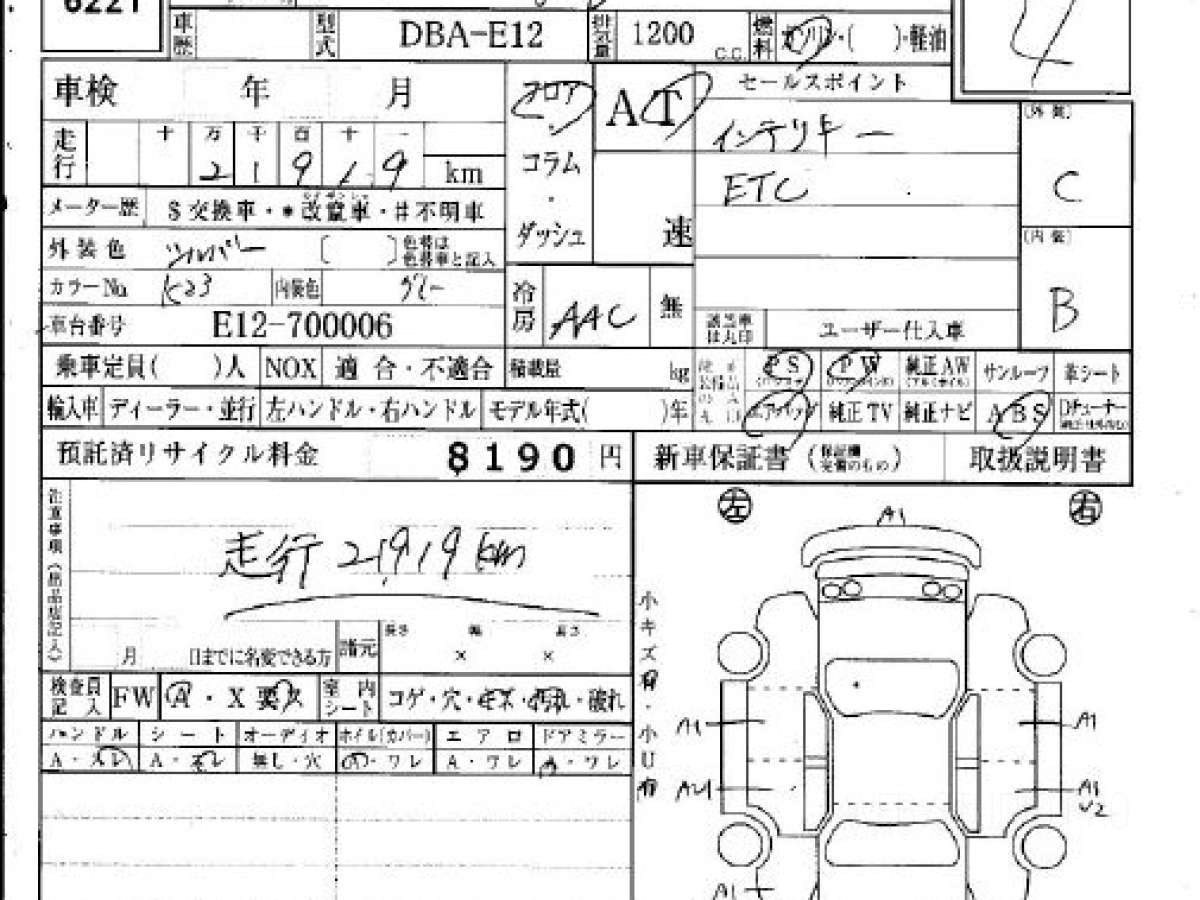 6221
車歴 型式 DBA-E12 排気量 1200 C.C. 燃料 ガソリン・( )・軽油
4
車検 年 月 フロア AT セールスポイント (外装)
走行 十 万 千 百 十 一
2 1 9 1 9 km コラム インテリキー C
メーター歴 $交換車・*改竄車・#不明車 ・ ETC
外装色 シルバー [ ]色替は色替車と記入 ダッシュ 速 (内装)
カラーNo. K23 内装色 グレー 冷房 AAC 無 B
車台番号 E12-700006 該当車は丸印 ユーザー仕入車
乗車定員( )人 NOX 適合・不適合 積載量 kg PS PW 純正AW サンルーフ 革シート
輸入車 ディーラー・並行 左ハンドル・右ハンドル モデル年式( )年 エアバッグ 純正TV 純正ナビ ABS
預託済リサイクル料金 8190 円 新車保証書 取扱説明書
注意事項(出品店記入) 左 A1 右
走行 21,919km
小キズ有・小U有
長さ 幅 高さ
月 日までに名変できる方 諸元 × ×
検査員記入 FW A・X 要 室内シート コゲ・穴・キズ・汚れ・破れ
ハンドル シート オーディオ ホイル(カバー) エアロ ドアミラー A1 A1
A・スレ A・スレ 無し・穴 A・ワレ A・ワレ A・ワレ
A1
U2
A1